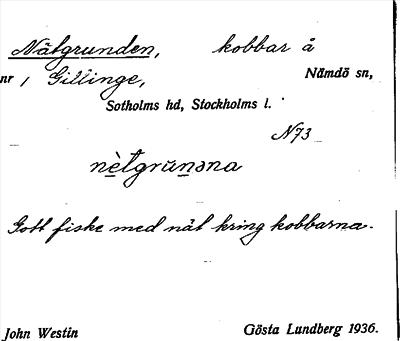 Nätgrunden, kobbar å
nr 1 Gillinge, Nämdö sn,
Sotholms hd, Stockholms l.
N73
nètgrūnəna
Gott fiske med nät kring kobbarna.
John Westin Gösta Lundberg 1936.